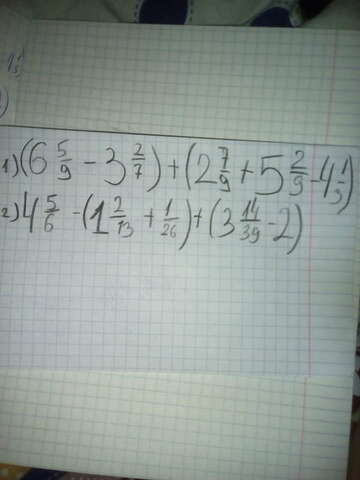 1) (6 5/9 - 3 2/7) + (2 7/9 + 5 2/9 - 4 1/3)
2) 4 5/6 - (1 2/13 + 1/26) + (3 14/39 - 2)